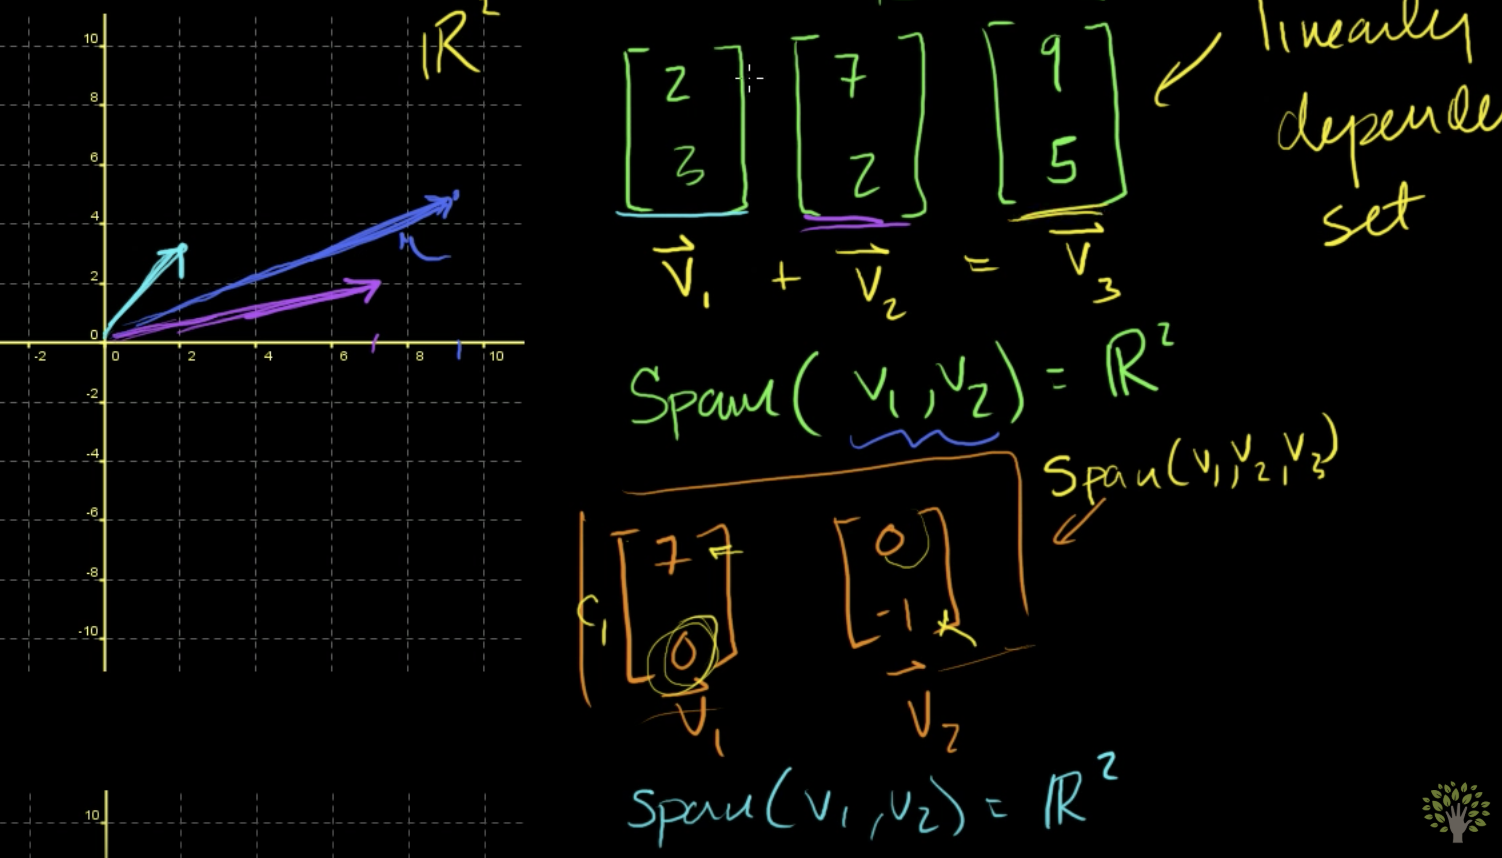 ℝ²
10
8
6
4
2
0
-2
-4
-6
-8
-10
-2 0 2 4 6 8 10
10
[2 3] [7 2] [9 5]
v₁ + v₂ = v₃
linearly
depende
set
Span(v₁, v₂) = ℝ²
Span(v₁, v₂, v₃)
c₁ [7 0] [0 -1]
v₁ v₂
Span(v₁, v₂) = ℝ²